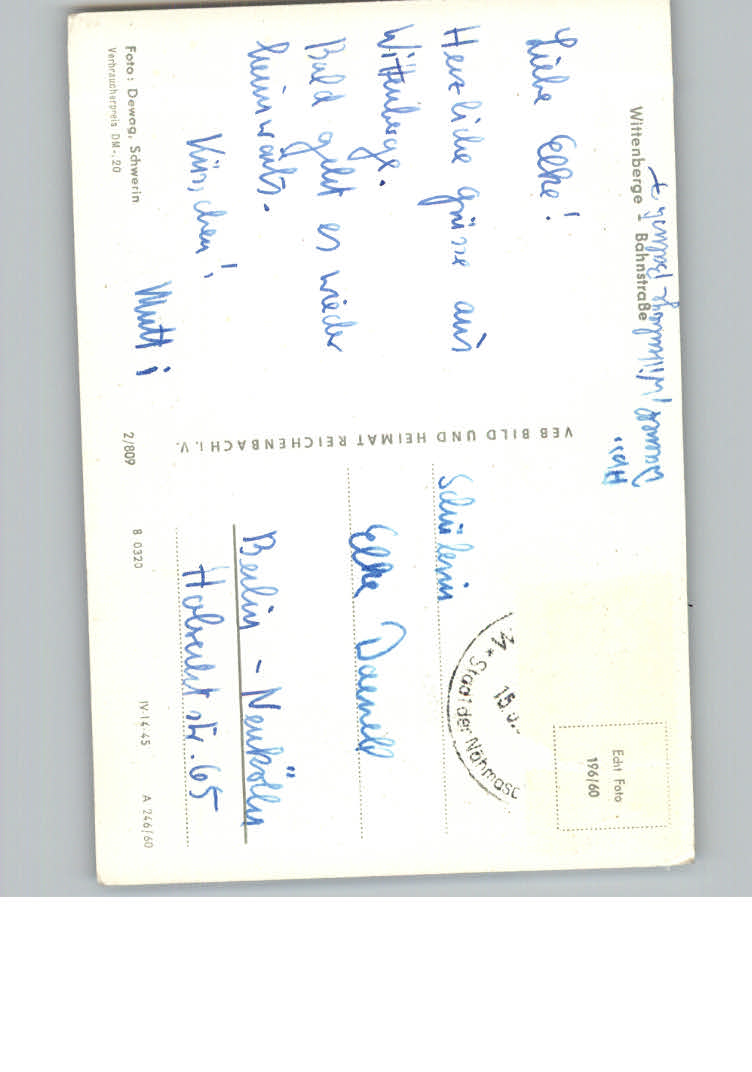 Wittenberge - Bahnstraße
Abs.
Liebe Elke!
Herzliche grüsse aus
Wittenberge.
Bald geht es wieder
heimwärts.
Küsschen!
Mutti
Foto: Dewag, Schwerin
Verbraucherpreis DM -,20
VEB BILD UND HEIMAT REICHENBACH I. V.
2/809
Echt Foto
196/60
* Stadt der Nähmasc
Schülerin
Elke
Berlin - Neukölln
Hobrecht str. 65
B 0320
IV-14-45
A 246/60